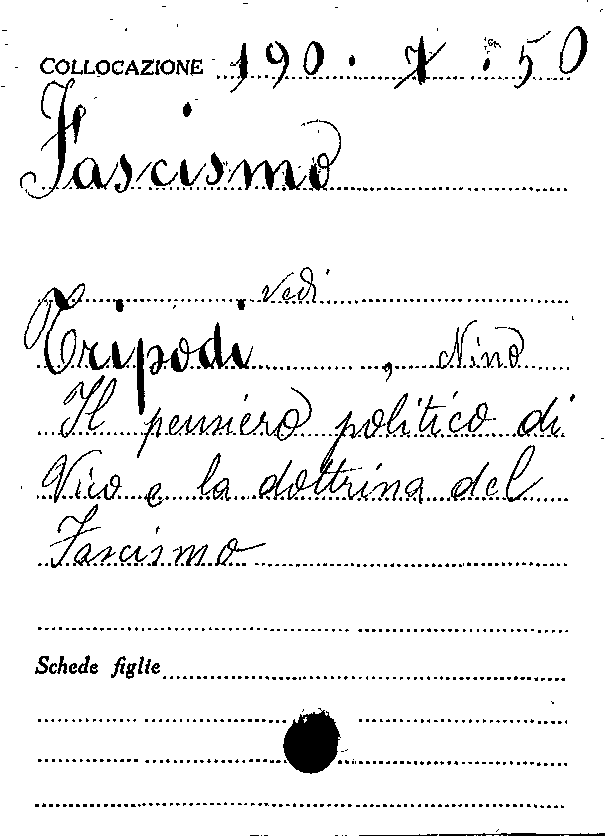 COLLOCAZIONE 190 . 7 . 50
Fascismo
vedi
Tripodi , Nino
Il pensiero politico di
Vico e la dottrina del
Fascismo
Schede figlie